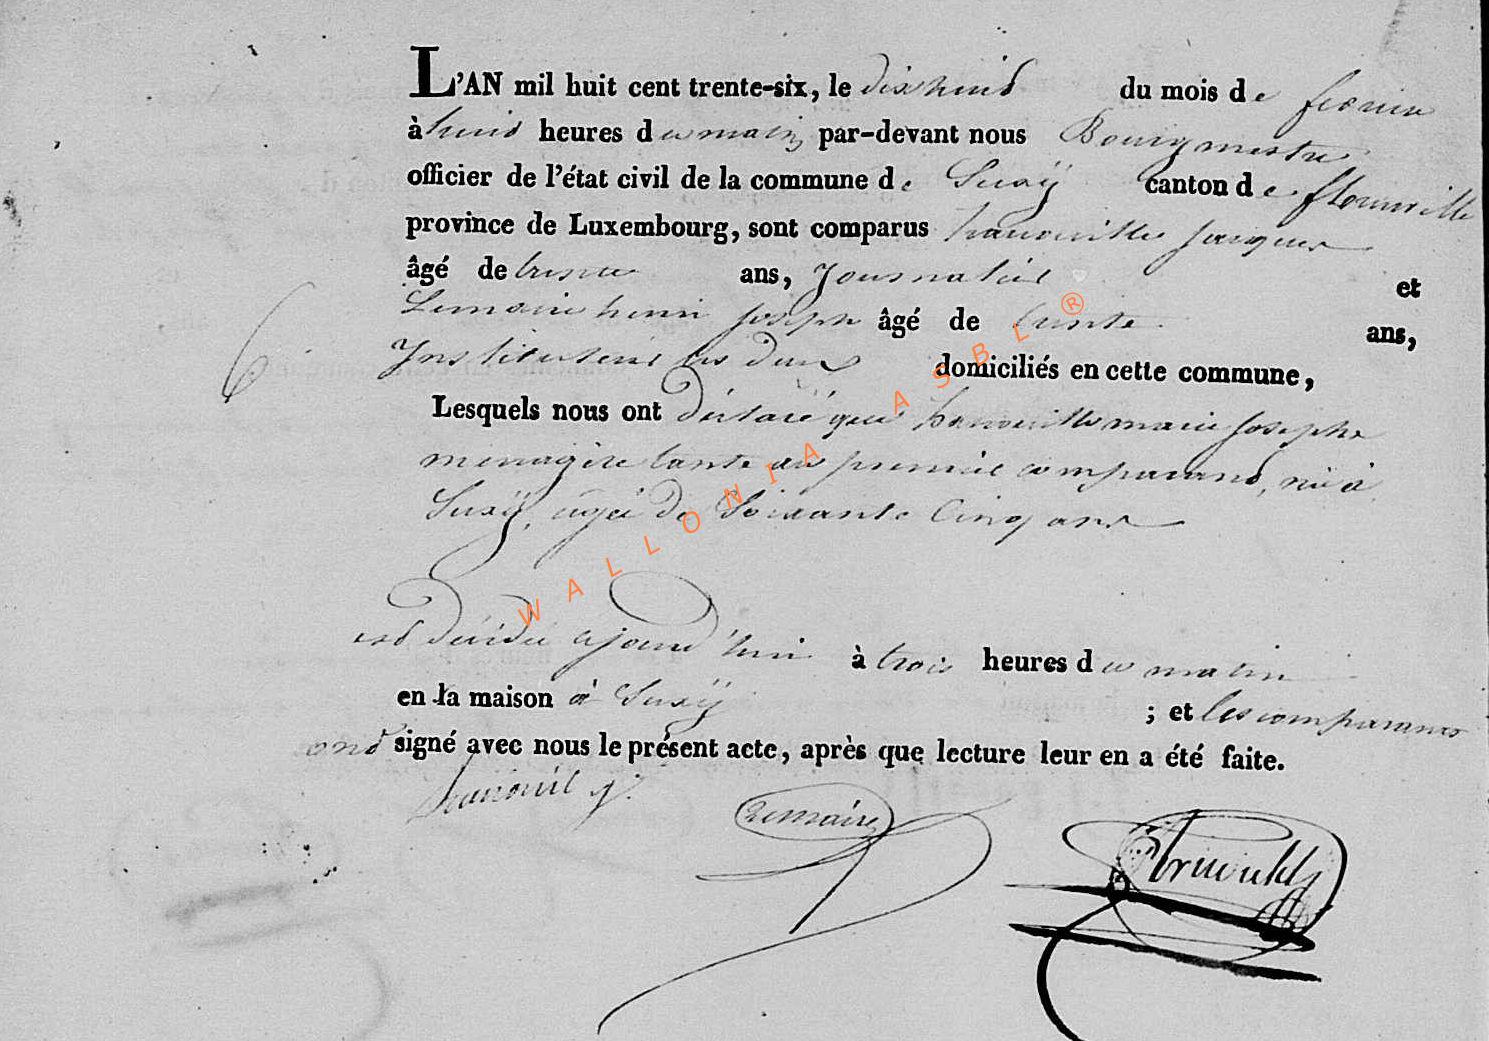 L'AN mil huit cent trente-six, le dixhuit du mois de fevrier
à huit heures du matin par-devant nous Bourgmestre
officier de l'état civil de la commune de Suxÿ canton de florenville
province de Luxembourg, sont comparus hanouille jacques
âgé de trente ans, Journalier et
Lemaire henri joseph âgé de trente ans,
Instituteur domiciliés en cette commune,
Lesquels nous ont déclaré que hanouille marie josephe
menagère tante au premier comparant, né à
Suxÿ, agée de Soixante Cinq ans
est décédée ajourd'hui à trois heures du matin
en la maison à Suxÿ ; et les comparants
ont signé avec nous le présent acte, après que lecture leur en a été faite.
hanouil j. Lemaire
6
WALLONIA ASBL ®